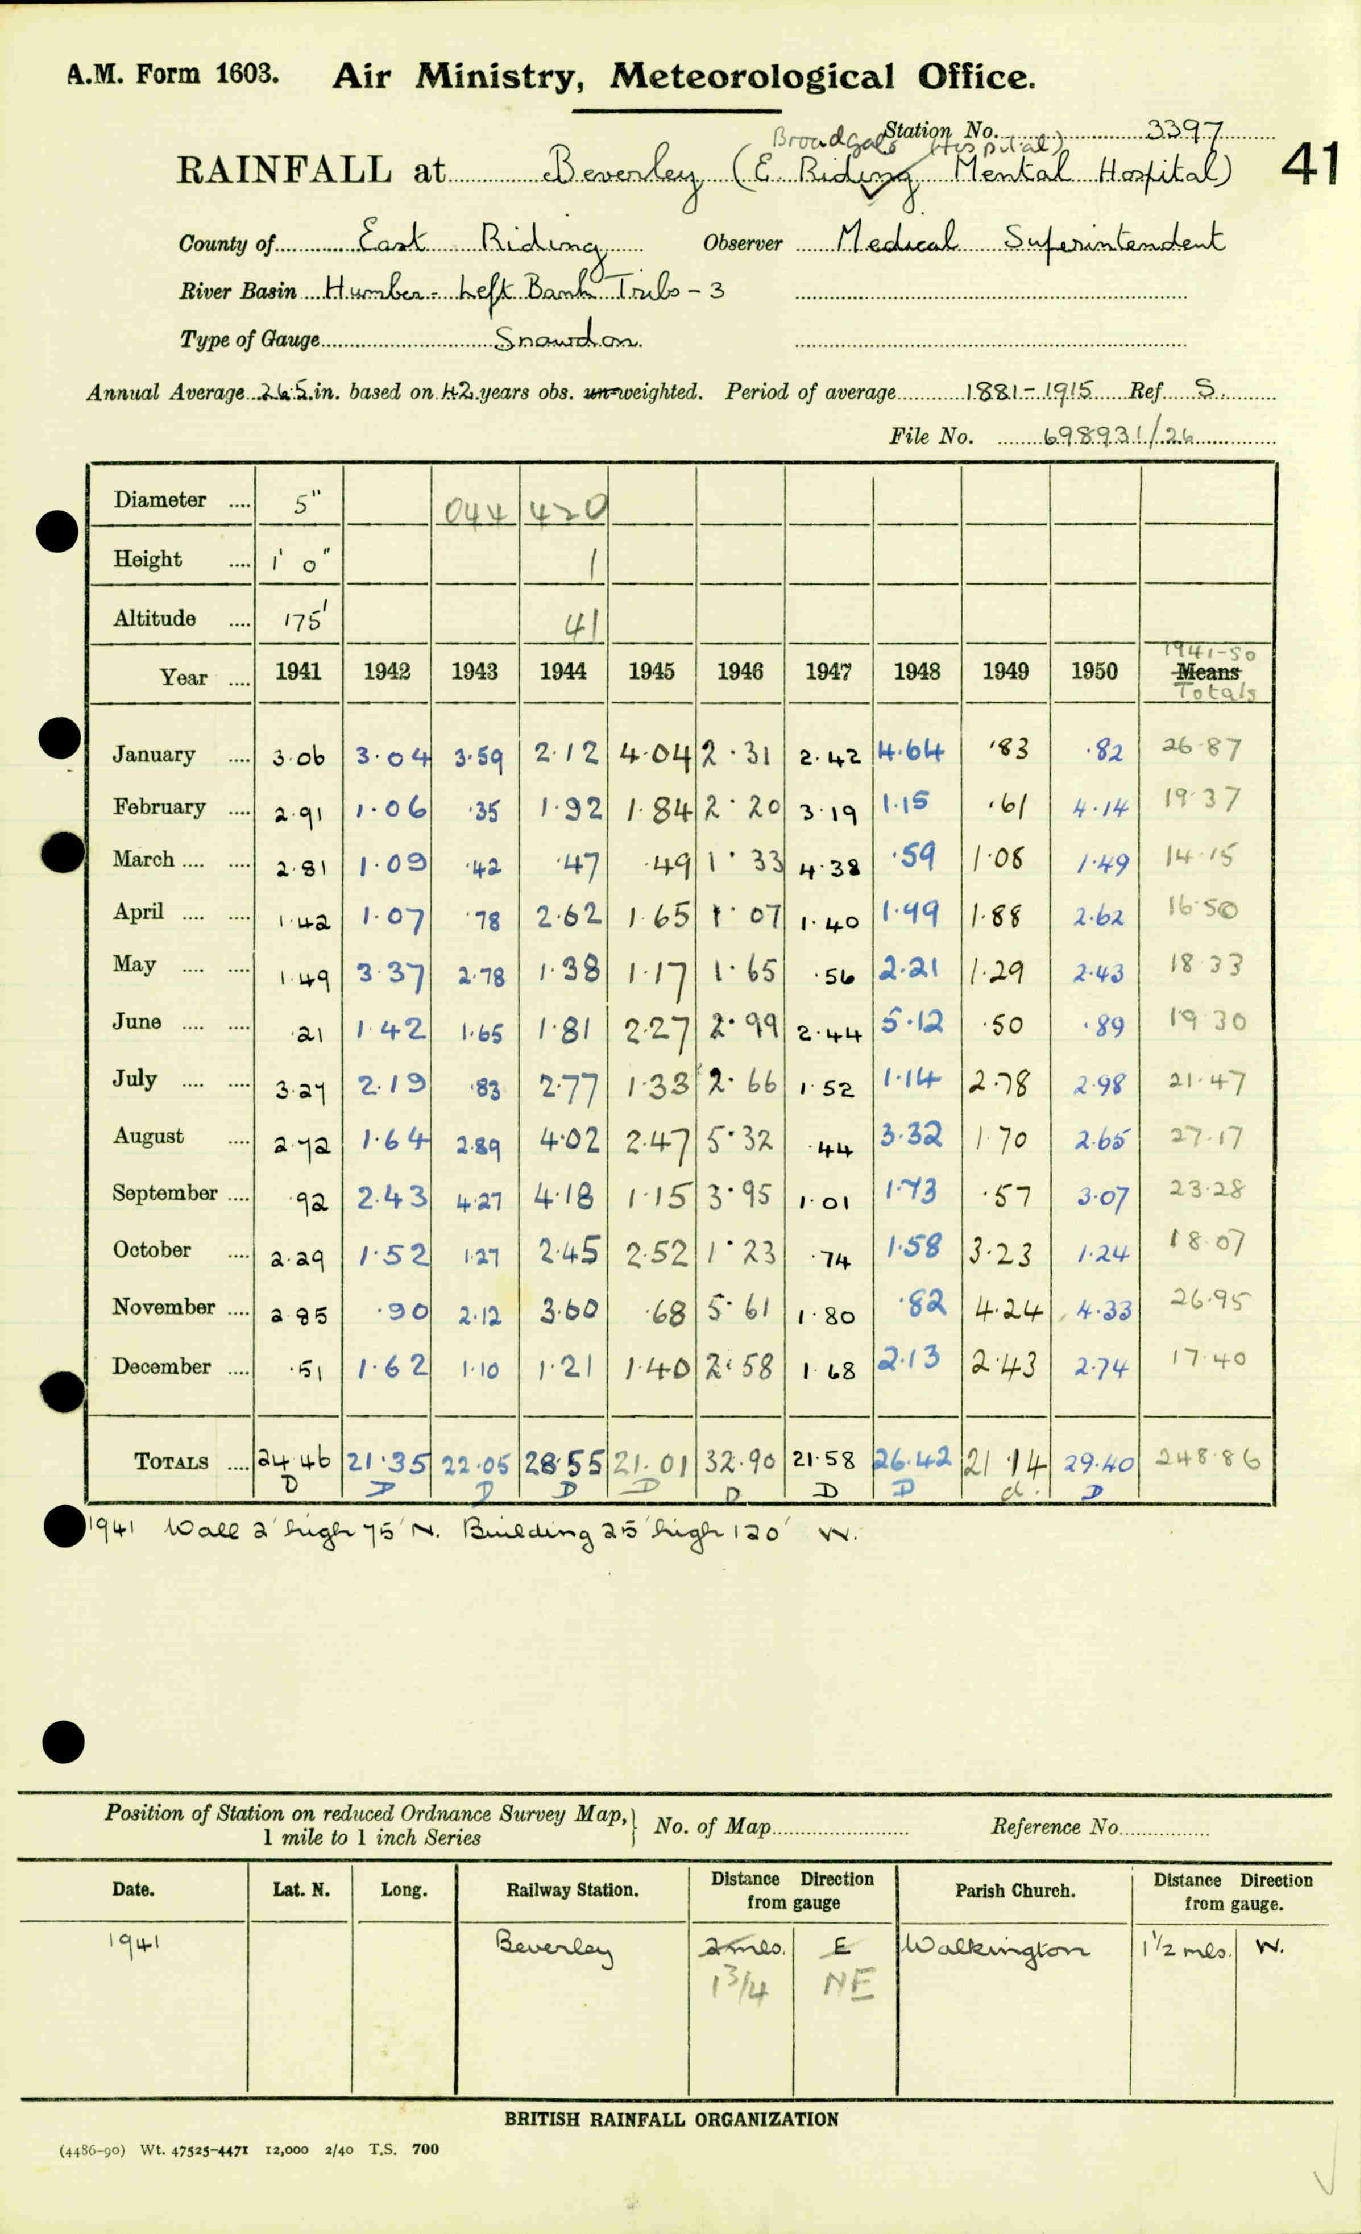 A.M. Form 1603. Air Ministry, Meteorological Office.
Station No. 3397
Broadgate Hospital)
RAINFALL at Beverley (E. Riding Mental Hospital) 41
County of East Riding Observer Medical Superintendent
River Basin Humber - Left Bank Tribs - 3
Type of Gauge Snowdon
Annual Average 26.5 in. based on 42 years obs. un-weighted. Period of average 1881-1915 Ref S.
File No. 698931/26
Diameter .... 5" 044 420
Height .... 1' 0" 1
Altitude .... 175' 41
1941-50
Year .... 1941 1942 1943 1944 1945 1946 1947 1948 1949 1950 Means
Totals
January .... 3.06 3.04 3.59 2.12 4.04 2.31 2.42 4.64 .83 .82 26.87
February .... 2.91 1.06 .35 1.92 1.84 2.20 3.19 1.15 .61 4.14 19.37
March .... .... 2.81 1.09 .42 .47 .49 1.33 4.38 .59 1.08 1.49 14.15
April .... .... 1.42 1.07 .78 2.62 1.65 1.07 1.40 1.99 1.88 2.62 16.50
May .... .... 1.49 3.37 2.78 1.38 1.17 1.65 .56 2.21 1.29 2.43 18.33
June .... .... .21 1.42 1.65 1.81 2.27 2.99 2.44 5.12 .50 .89 19.30
July .... .... 3.27 2.19 .83 2.77 1.33 2.66 1.52 1.14 2.78 2.98 21.47
August .... 2.72 1.64 2.89 4.02 2.47 5.32 .44 3.32 1.70 2.65 27.17
September .... .92 2.43 4.27 4.18 1.15 3.95 1.01 1.73 .57 3.07 23.28
October .... 2.29 1.52 1.27 2.45 2.52 1.23 .74 1.58 3.23 1.24 18.07
November .... 2.85 .90 2.12 3.60 .68 5.61 1.80 .82 4.24 4.33 26.95
December .... .51 1.62 1.10 1.21 1.40 2.58 1.68 2.13 2.43 2.74 17.40
TOTALS .... 24.46 21.35 22.05 28.55 21.01 32.90 21.58 26.42 21.14 29.40 248.86
D D D D D D D D d. D
1941 Wall 2' high 75' N. Building 25' high 120' W.
Position of Station on reduced Ordnance Survey Map, } No. of Map Reference No.
1 mile to 1 inch Series
Date. Lat. N. Long. Railway Station. Distance Direction from gauge Parish Church. Distance Direction from gauge.
1941 Beverley 2 mls. E Walkington 1 1/2 mls. W.
1 3/4 NE
BRITISH RAINFALL ORGANIZATION
(4486-90) Wt. 47525-4471 12,000 2/40 T.S. 700